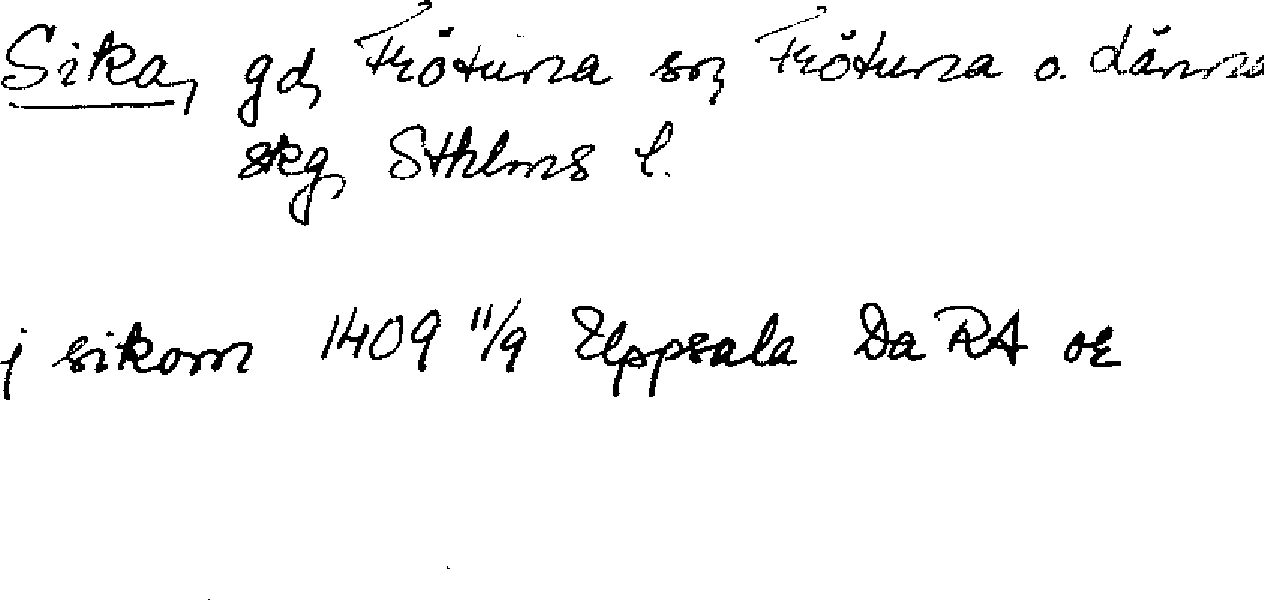 Sika, gd, Frötuna sn, Frötuna o. Länna
skg, Sthlms l.
j sikom 1409 11/9 Uppsala Da RA or